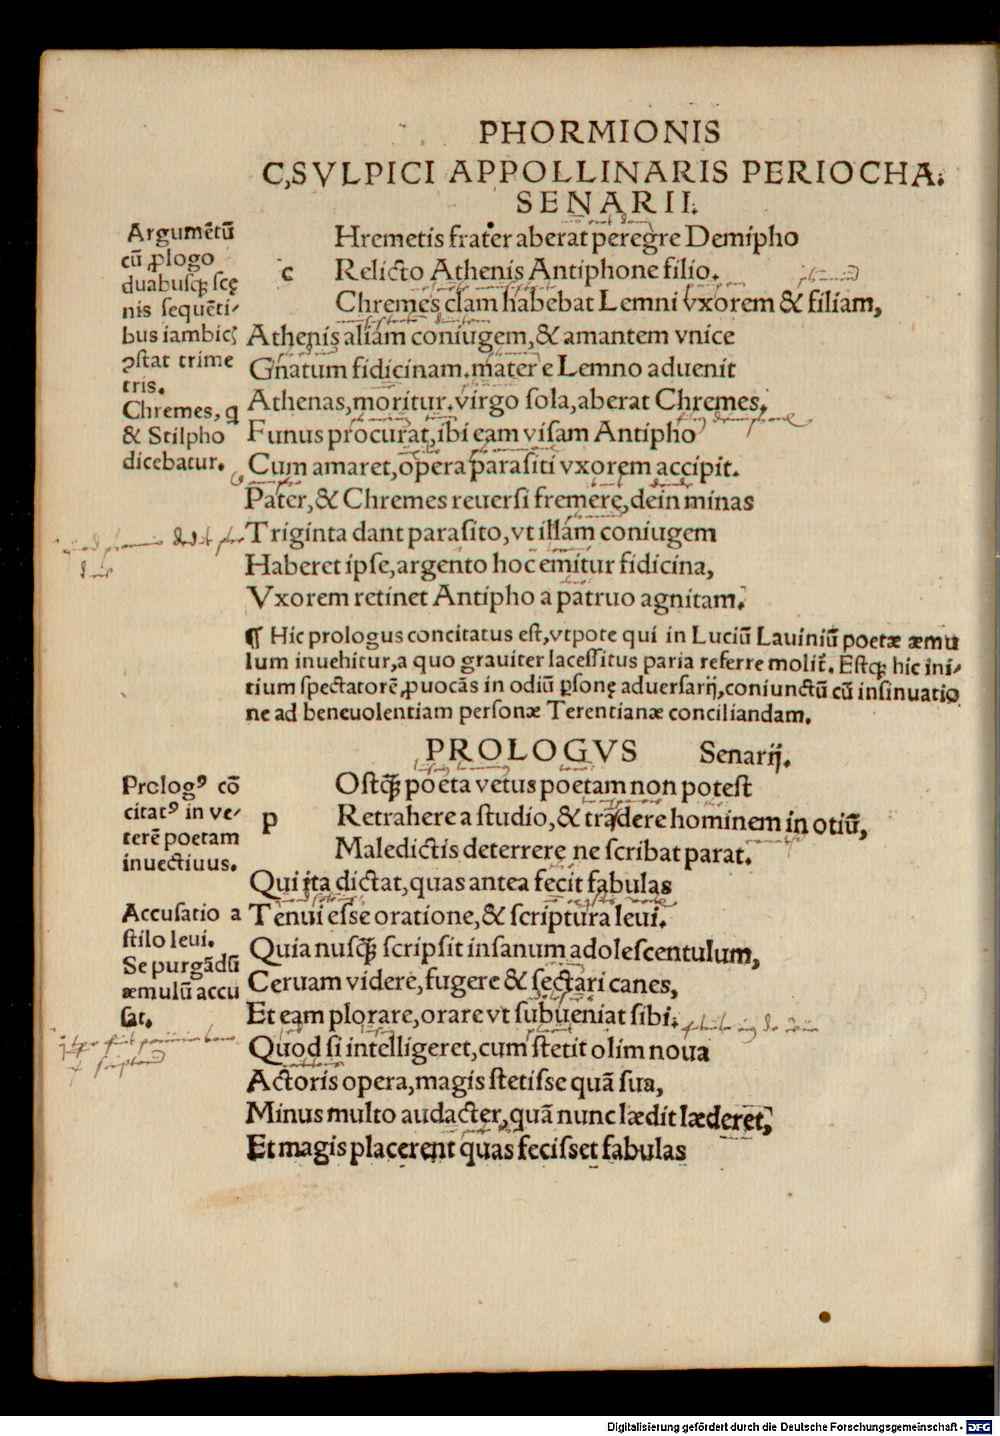 PHORMIONIS
C,SVLPICI APPOLLINARIS PERIOCHA.
SENARII.
Argumētū
cū ꝓlogo
duabusqꝫ scę
nis sequēti-
bus iambicꝭ
ꝯstat trime
tris.
Chremes, q
& Stilpho
dicebatur.
Hremetis frater aberat peregre Demipho
c Relicto Athenis Antiphone filio.
Chremes clam habebat Lemni vxorem & filiam,
Athenis aliam coniugem,& amantem vnice
Gnatum fidicinam.mater e Lemno aduenit
Athenas,moritur.virgo sola,aberat Chremes.
Funus procurat,ibi eam visam Antipho
Cum amaret,opera parasiti vxorem accipit.
Pater,& Chremes reuersi fremere,dein minas
Triginta dant parasito,vt illam coniugem
Haberet ipse,argento hoc emitur fidicina,
Vxorem retinet Antipho a patruo agnitam.
¶ Hic prologus concitatus est,vtpote qui in Luciū Lauiniū poetæ æmu
lum inuehitur,a quo grauiter lacessitus paria referre molit̄. Estqꝫ hic ini-
tium spectatorē ꝓuocās in odiū ꝑsonę aduersarij,coniunctū cū insinuatio
ne ad beneuolentiam personæ Terentianæ conciliandam.
PROLOGVS Senarij.
Prologꝰ cō
citatꝰ in ve-
terē poetam
inuectiuus.
Accusatio a
stilo leui.
Se purgādū
æmulū accu
sat.
Ostqꝫ̄ poeta vetus poetam non potest
p Retrahere a studio,& tradere hominem in otiū,
Maledictis deterrere ne scribat parat.
Qui ita dictat,quas antea fecit fabulas
Tenui esse oratione,& scriptura leui.
Quia nusqꝫ̄ scripsit insanum adolescentulum,
Ceruam videre,fugere & sectari canes,
Et eam plorare,orare vt subueniat sibi.
Quod si intelligeret,cum stetit olim noua
Actoris opera,magis stetisse quā sua,
Minus multo audacter,quā nunc lædit læderet,
Et magis placerent quas fecisset fabulas
Digitalisierung gefördert durch die Deutsche Forschungsgemeinschaft - DFG